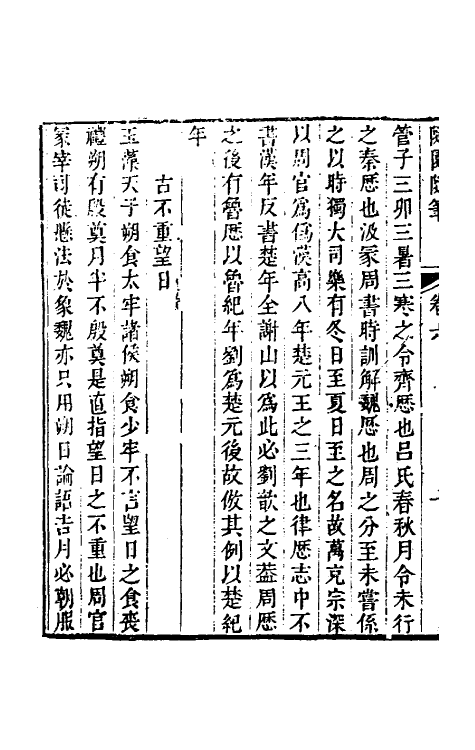 隨園隨筆 卷六
管子三卯三暑三寒之令齊厯也呂氏春秋月令未行
之秦厯也汲冢周書時訓解魏厯也周之分至未嘗係
之以時獨大司樂有冬日至夏日至之名故萬克宗深
以周官爲僞漢高八年楚元王之三年也律厯志中不
書漢年反書楚年全謝山以爲此必劉歆之文葢周厯
之後有魯厯以魯紀年劉爲楚元後故倣其例以楚紀
年
古不重望日
玉藻天子朔食太牢諸侯朔食少牢不言望日之食喪
禮朔有殷奠月半不殷奠是直指望日之不重也周官
冢宰司徒懸法於象魏亦只用朔日論語吉月必朝服